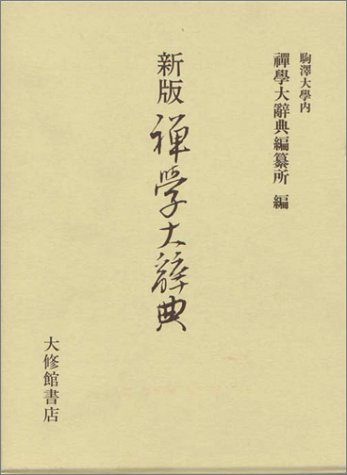 駒澤大學内
禪學大辭典編纂所 編
新版 禅学大辞典
大修館書店